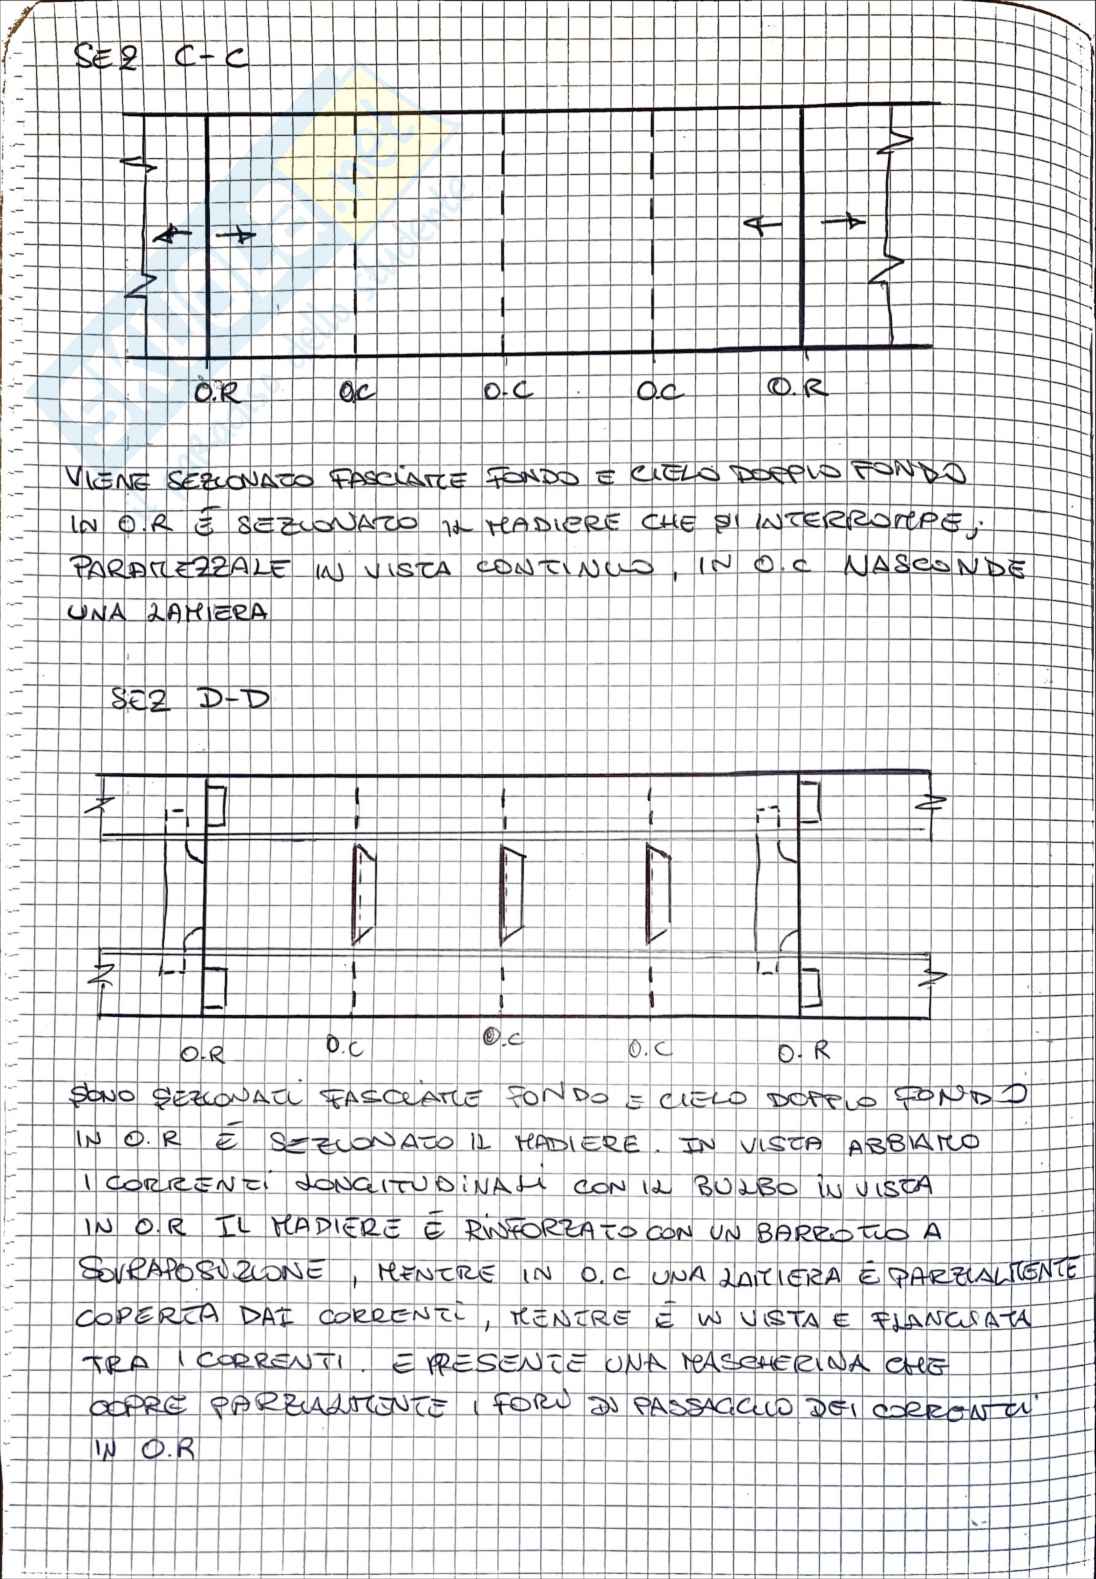 SEZ C-C
O.R O.C O.C O.C O.R
VIENE SEZIONATO FASCIAME FONDO E CIELO DOPPIO FONDO
IN O.R È SEZIONATO IL MADIERE CHE SI INTERROMPE,
PARAMEZZALE IN VISTA CONTINUO, IN O.C NASCONDE
UNA LAMIERA
SEZ D-D
O.R O.C O.C O.C O.R
SONO SEZIONATI FASCIAME FONDO E CIELO DOPPIO FONDO
IN O.R È SEZIONATO IL MADIERE. IN VISTA ABBIAMO
I CORRENTI LONGITUDINALI CON IL BULBO IN VISTA
IN O.R IL MADIERE È RINFORZATO CON UN BARROTTO A
SOVRAPOSIZIONE, MENTRE IN O.C UNA LAMIERA È PARZIALMENTE
COPERTA DAI CORRENTI, MENTRE È IN VISTA E FLANGIATA
TRA I CORRENTI. E PRESENTE UNA MASCHERINA CHE
COPRE PARZIALMENTE I FORI DI PASSAGGIO DEI CORRENTI
IN O.R
SKUOLA.net